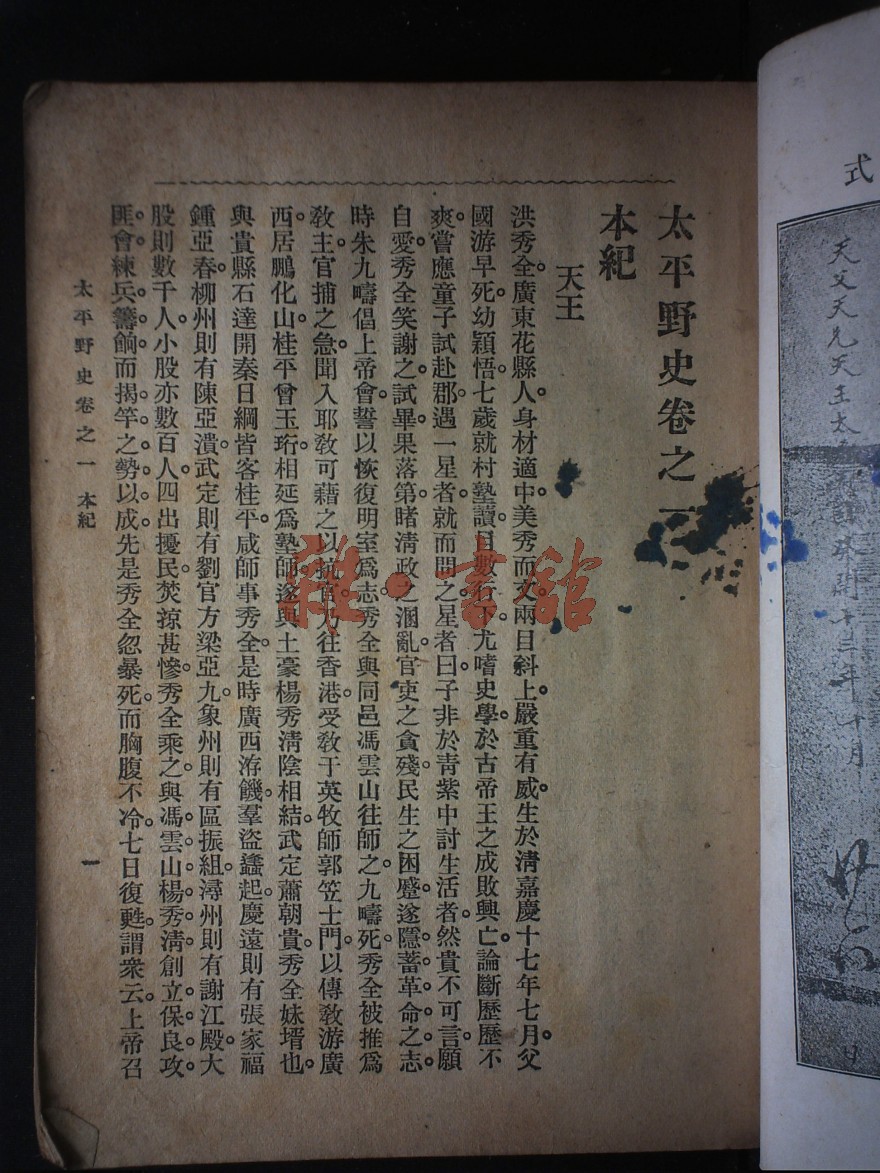 太平野史卷之一
本紀
天王
洪秀全。廣東花縣人。身材適中。美秀而文。兩目斜上。嚴重有威。生於清嘉慶十七年七月。父
國游早死。幼穎悟。七歲就村塾。讀目數行下。尤嗜史學。於古帝王之成敗興亡。論斷歷歷不
爽。嘗應童子試。赴郡。遇一星者。就而問之。星者曰。子非於青紫中討生活者。然貴不可言。願
自愛。秀全笑謝之。試畢果落第。睹清政之溷亂。官吏之貪殘。民生之困蹙。遂隱蓄革命之志。
時朱九疇倡上帝會。誓以恢復明室爲志。秀全與同邑馮雲山往師之。九疇死。秀全被推爲
教主。官捕之急。聞入耶教可藉之以抗官。乃往香港。受教于英牧師郭笠士門。以傳教游廣
西。居鵬化山。桂平曾玉珩相延爲塾師。遂與土豪楊秀清陰相結。武定蕭朝貴。秀全妹壻也。
與貴縣石達開秦日綱皆客桂平。咸師事秀全。是時廣西洊饑。羣盜蠭起。慶遠則有張家福
鍾亞春。柳州則有陳亞潰。武定則有劉官方梁亞九。象州則有區振組。潯州則有謝江殿。大
股則數千人。小股亦數百人。四出擾民。焚掠甚慘。秀全乘之。與馮雲山楊秀清創立保良攻
匪會。練兵籌餉。而揭竿之勢以成。先是秀全忽暴死。而胸腹不冷。七日復甦。謂衆云。上帝召
太平野史卷之一 本紀
一
式
天父天兄天王太
十三年十月
雜·書館